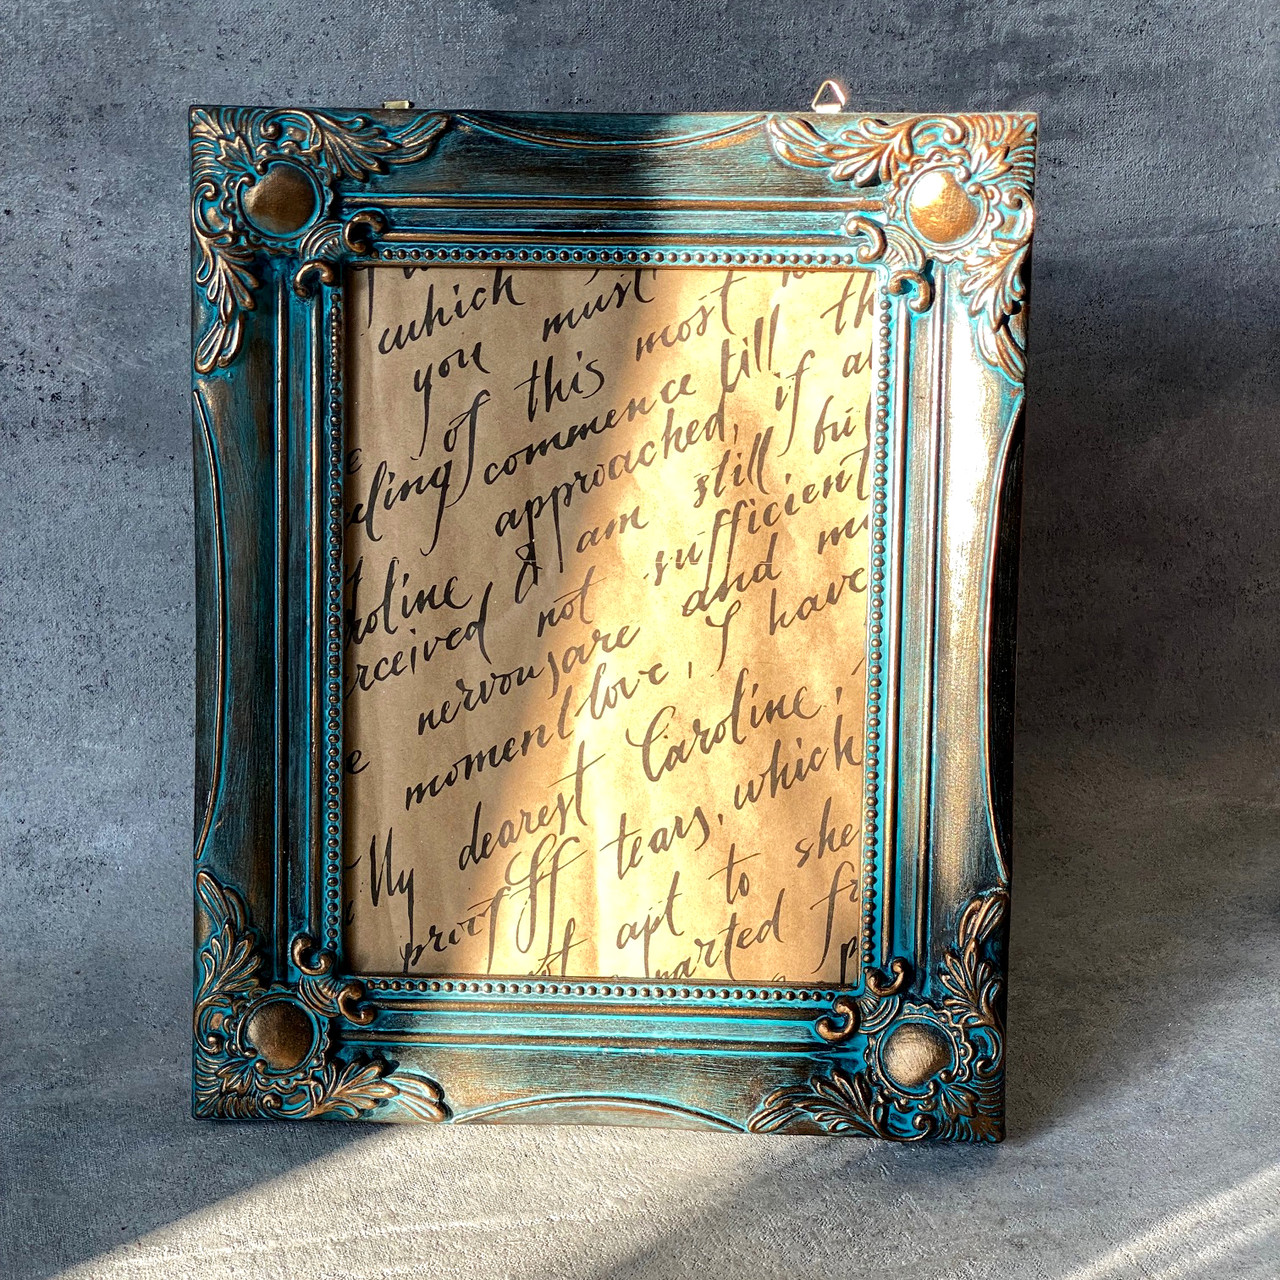 which
you must
of this most
commence till
approached, if
I am still
not sufficient
nervous are and
moment love, I have
My dearest Caroline,
proof off tears, which
apt to she